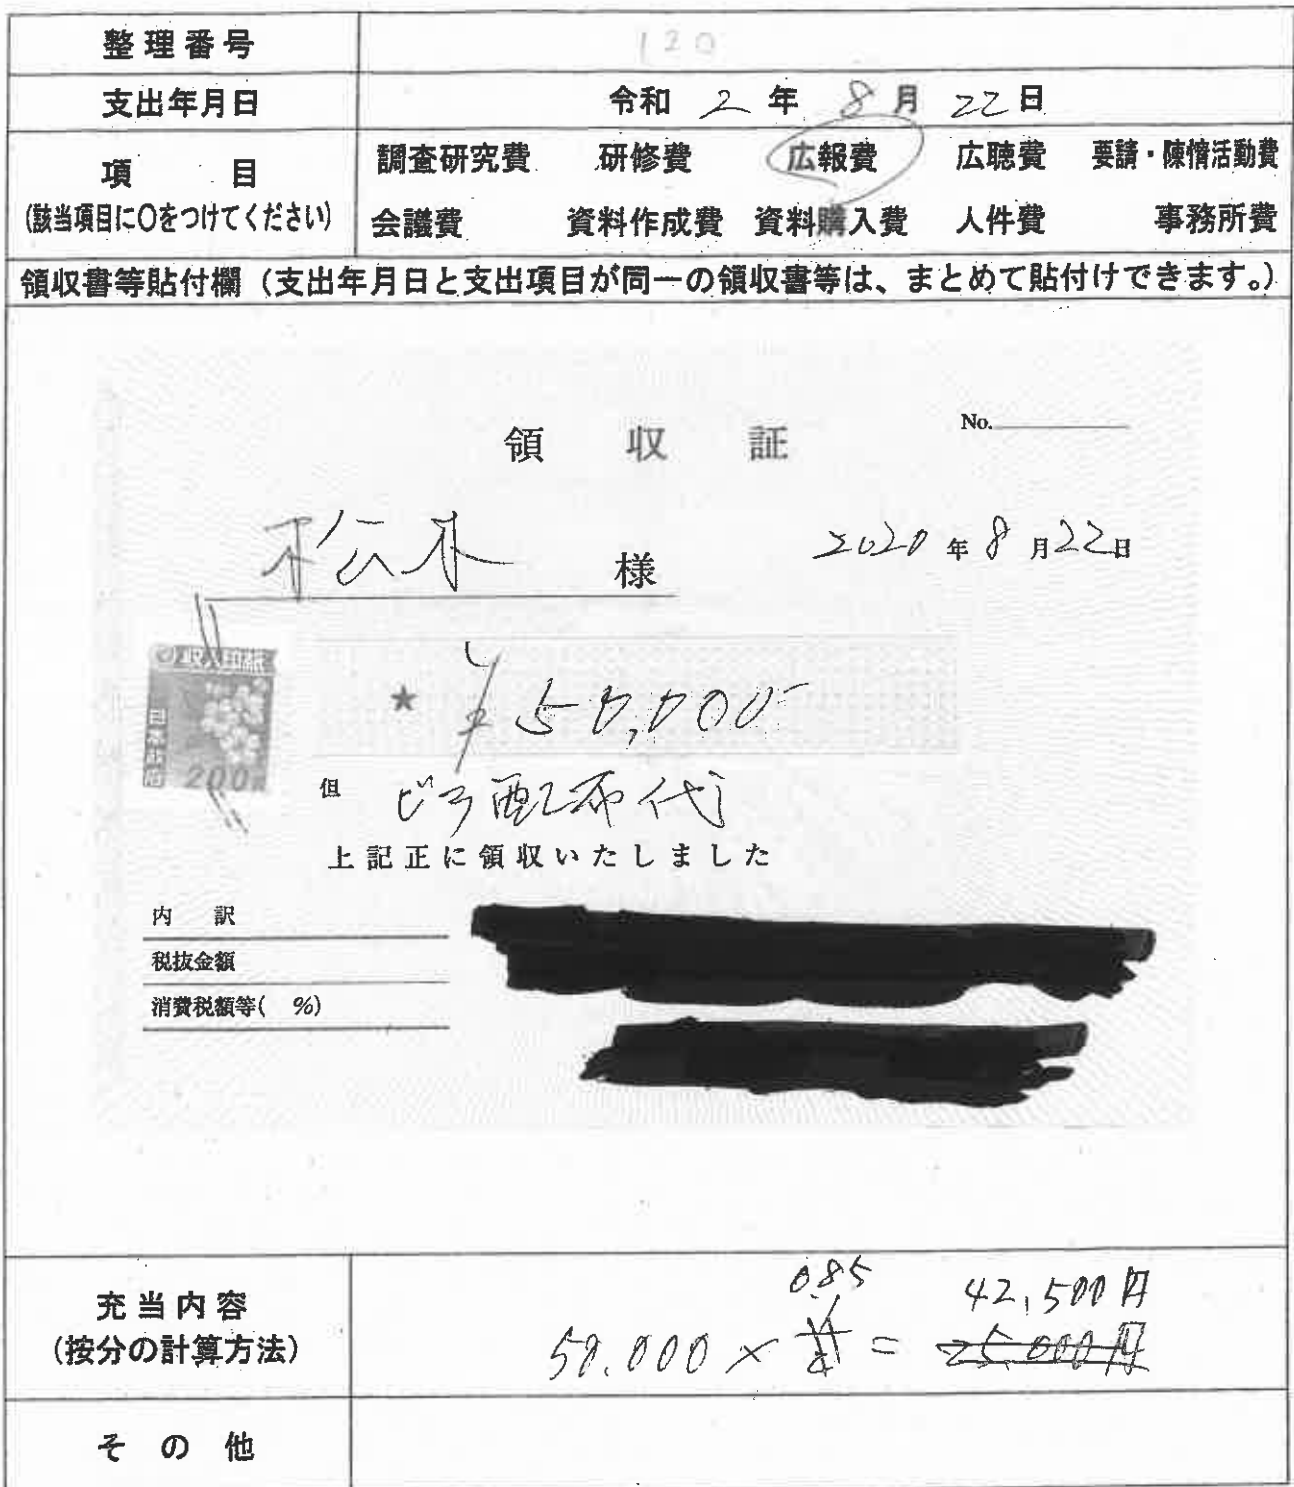 整理番号 120
支出年月日 令和 2 年 8 月 22 日
項 目
(該当項目に〇をつけてください)
調査研究費 研修費 広報費 広聴費 要請・陳情活動費
会議費 資料作成費 資料購入費 人件費 事務所費
領収書等貼付欄（支出年月日と支出項目が同一の領収書等は、まとめて貼付けできます。）
領 収 証
No.
松木 様
2020 年 8 月 22 日
収入印紙
日本政府
200円
★ ¥50,000-
但 ビラ配布代
上記正に領収いたしました
内 訳
税抜金額
消費税額等( %)
充当内容
(按分の計算方法)
0.85 42,500円
50.000 × = 25,000円
その他